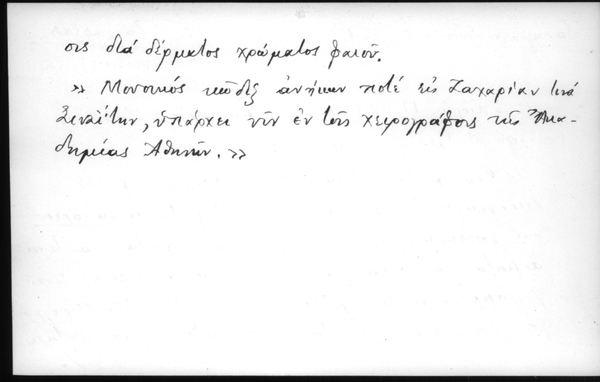 σις διά δέρματος χρώματος φαιοῦ.
» Μουσικός κῶδιξ ἀνήκων ποτέ εἰς Ζαχαρίαν τινά
Σιναΐτην, ὑπάρχει νῦν ἐν τοῖς χειρογράφοις τῆς Ἀκα-
δημίας Ἀθηνῶν. »